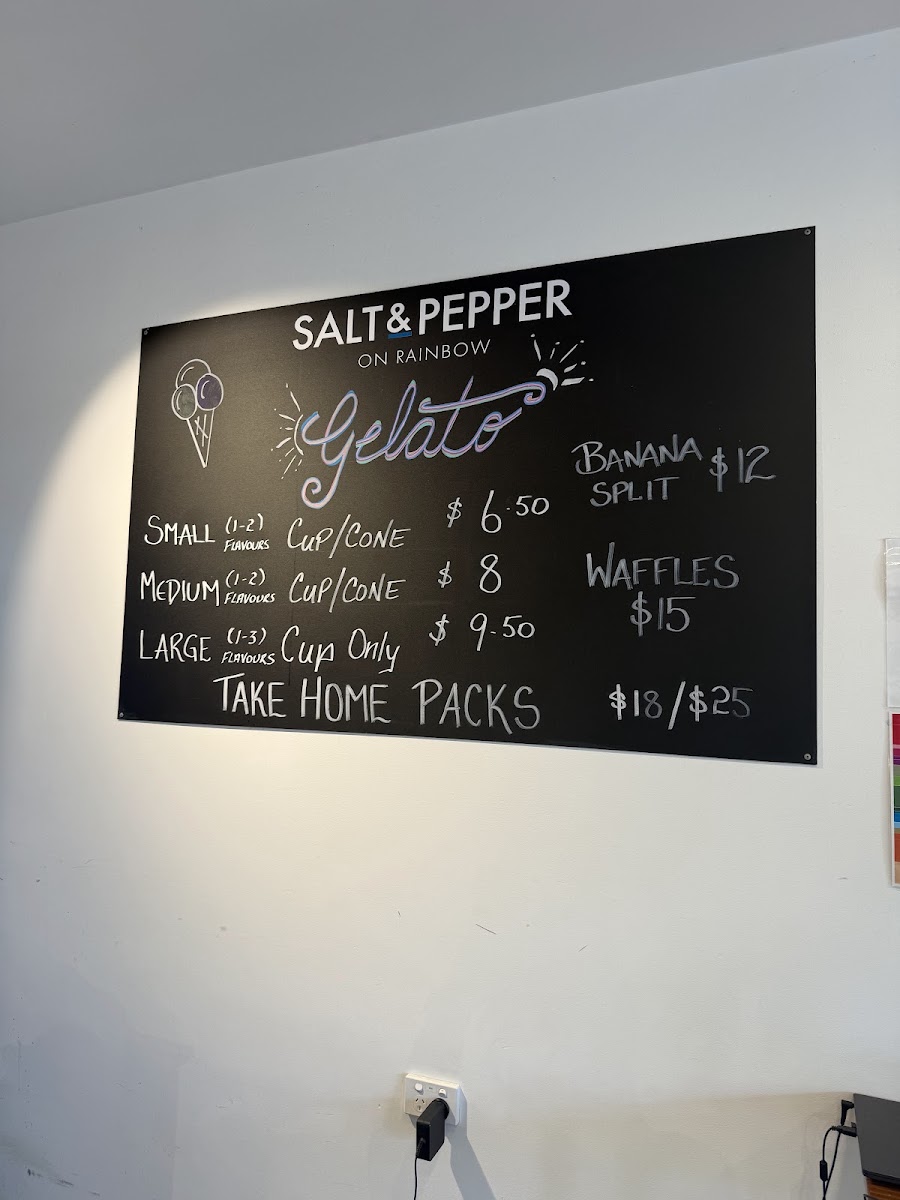 SALT & PEPPER
ON RAINBOW
Gelato
SMALL (1-2) FLAVOURS CUP/CONE $6.50
MEDIUM (1-2) FLAVOURS CUP/CONE $8
LARGE (1-3) FLAVOURS Cup Only $9.50
TAKE HOME PACKS $18/$25
BANANA SPLIT $12
WAFFLES
$15